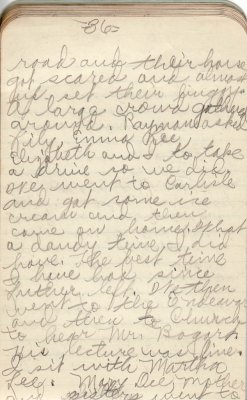 86
road and their horse
got scared and almost
up set their buggy.
A large crowd going
around. Raymond asked
Lily, Emma Lee,
Elizabeth and I to take
a drive so we did.
We went to Carlisle
and got some ice
cream and then
came on home. What
a dandy time I did
have. The best time
I have had since
Luther left. We then
went to the Endeavor
and then to Church
to hear Mr. Bogart
his lecture was fine.
I sit with Martha
Lee. Mary Dee, mother
and sisters went to